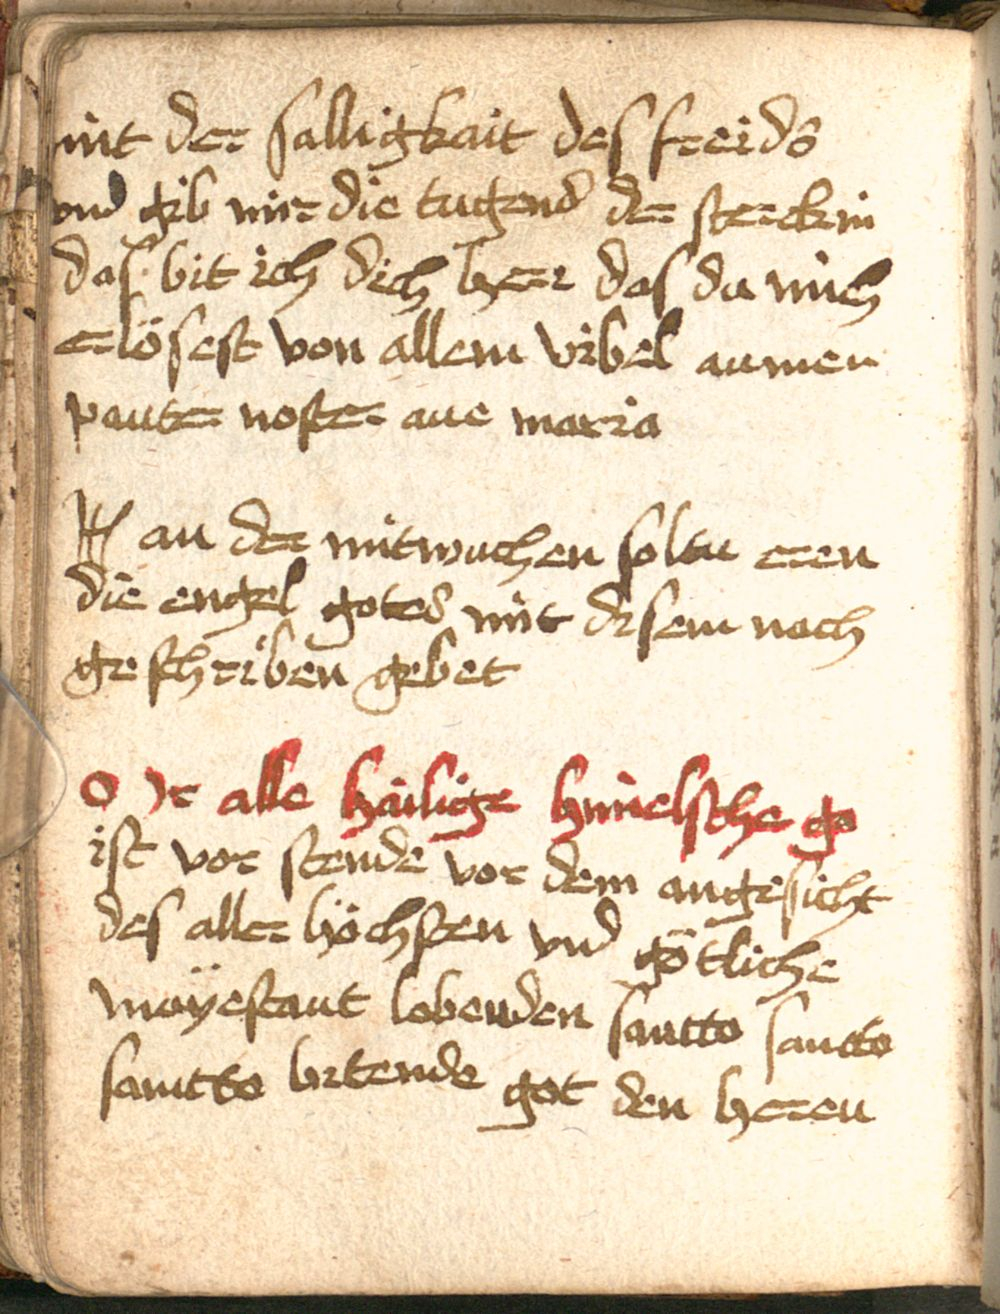 mit der salligkait des freids
vnd gib mir die tugend der sterckin
das bit ich dich herr das du mich
erlösest von allem vibel aumen
pauter noster aue maria
an der mitwuchen soltu eren
die engel gotes mit disem nach
geschriben gebet
O Ir alle hailige himelsche ge
ist vor stende vor dem angesicht
des aller höchsten vnd götliche
mayestaut lobenden santto santto
santto bittende got den heren